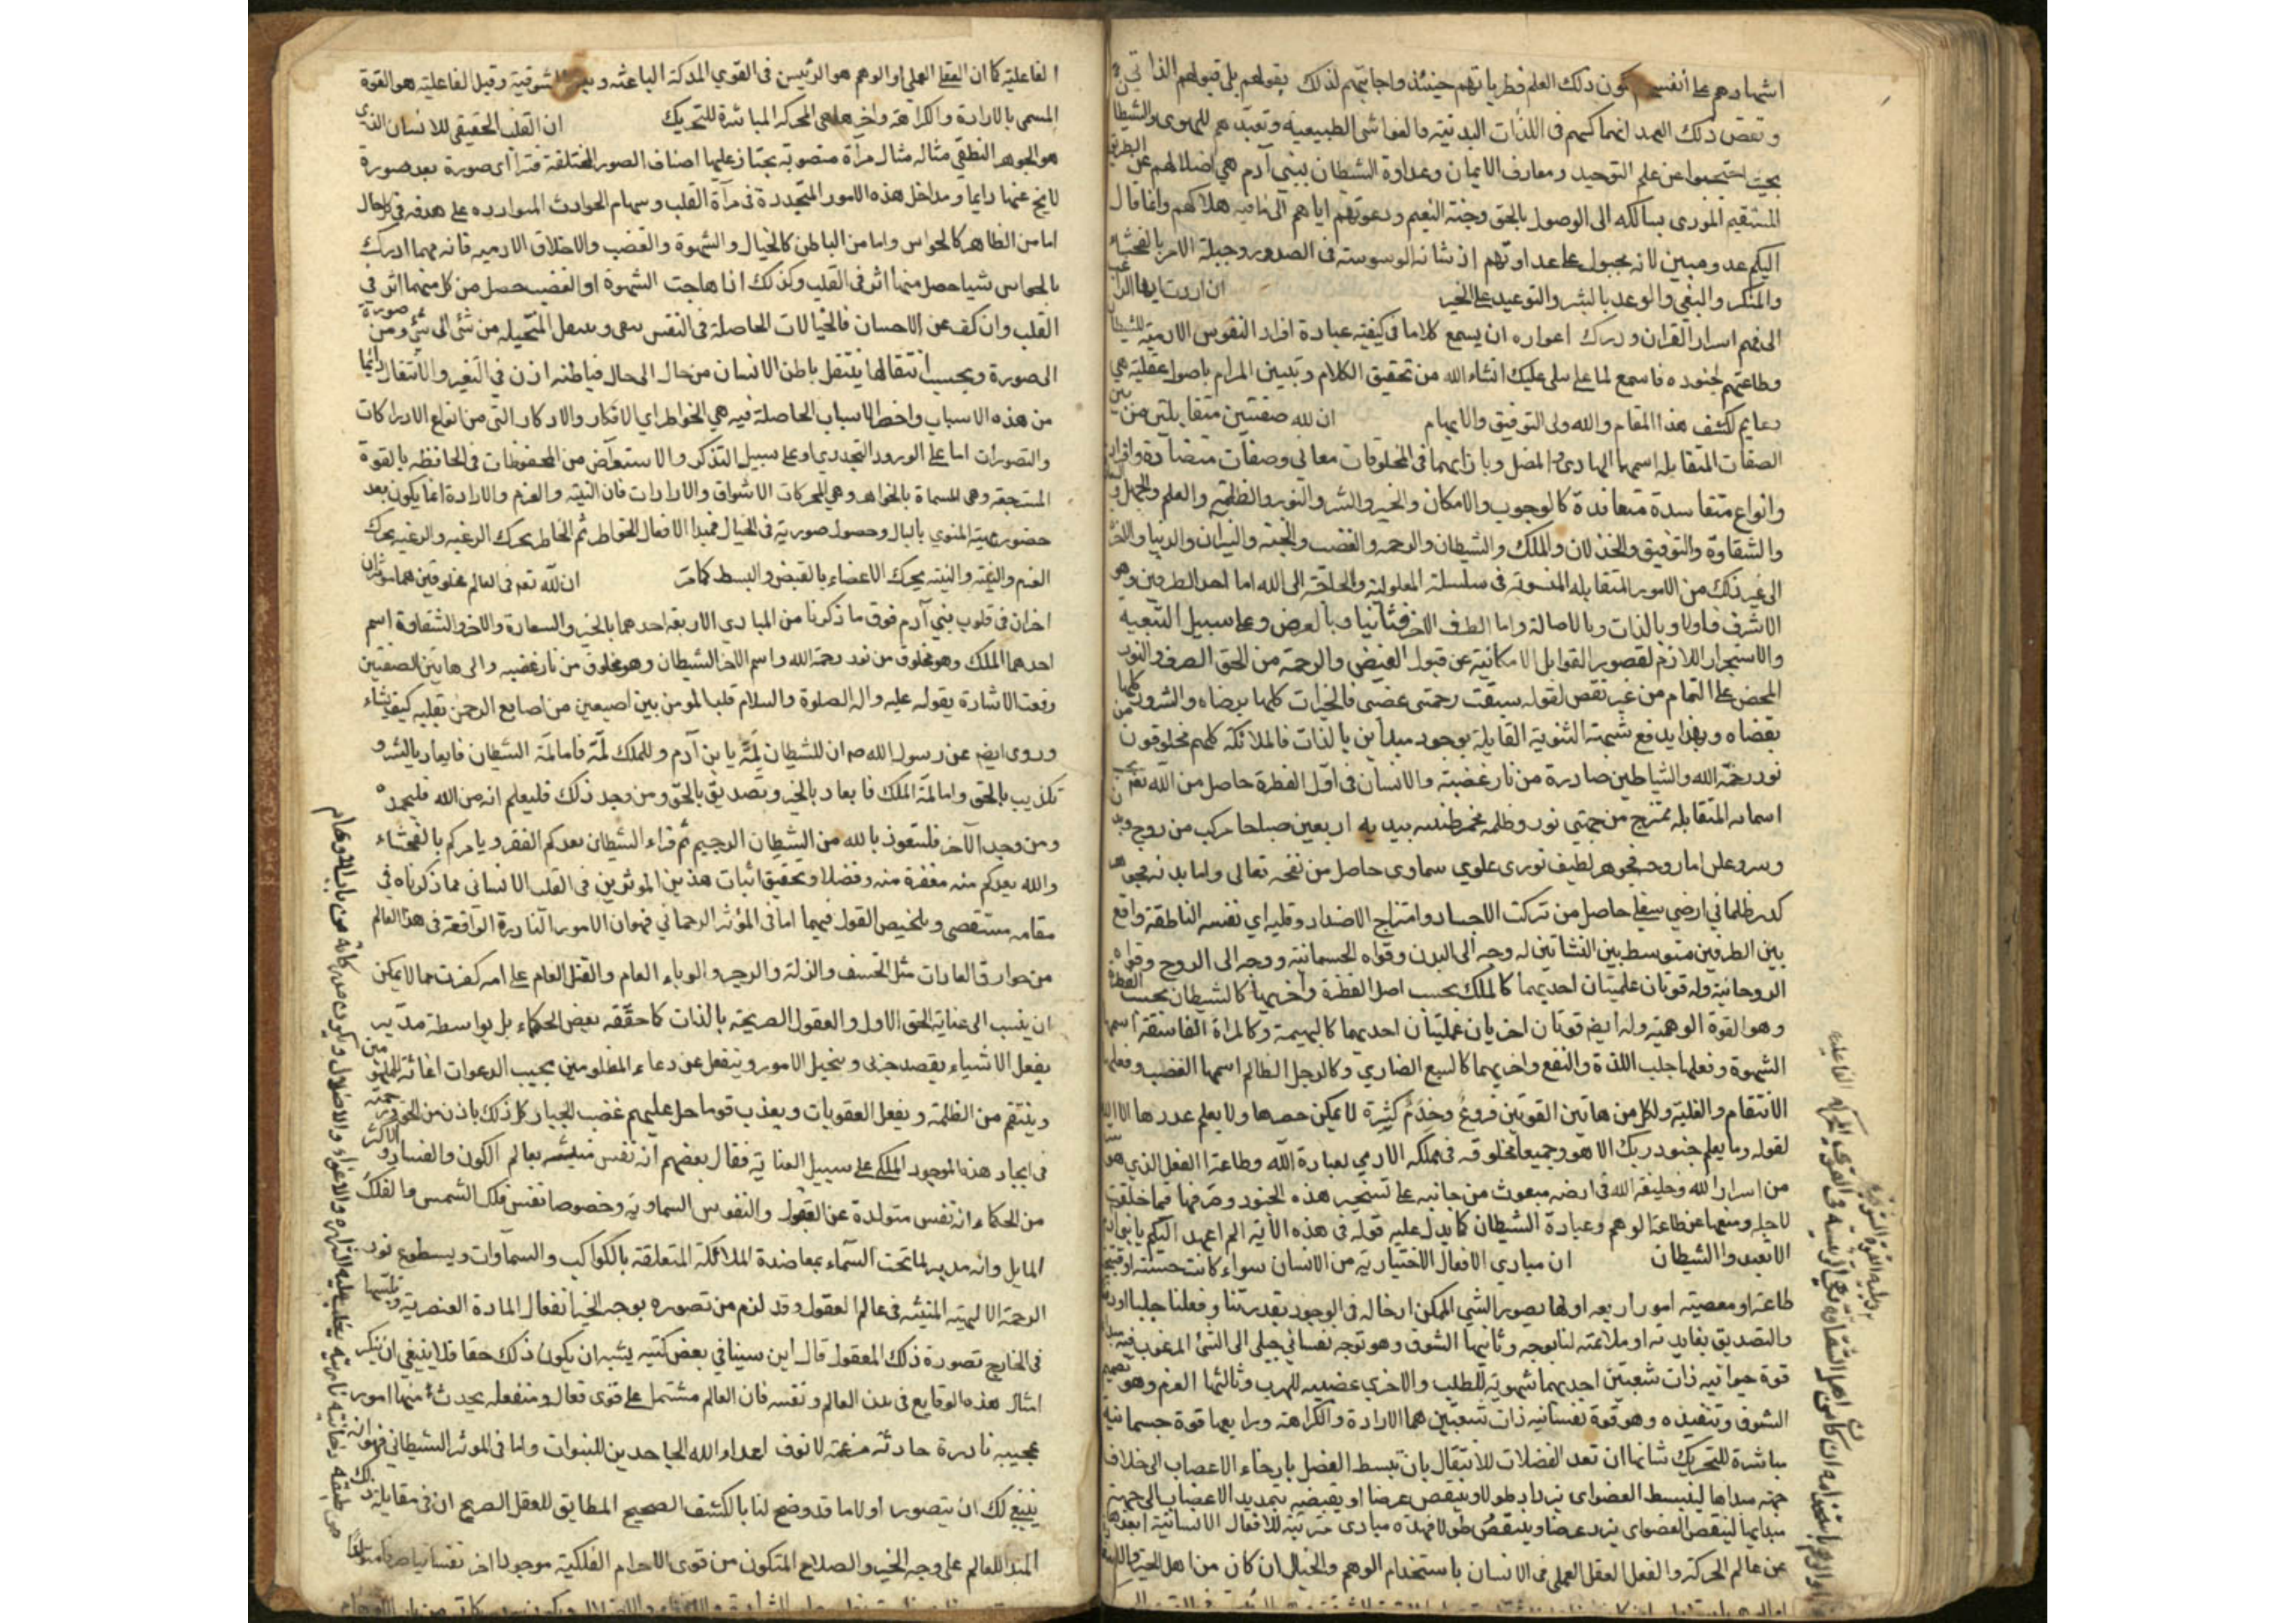 اشهادهم على أنفسهم كون ذلك العلم فطرياتهم حينئذ واجابتهم لذلك بقولهم بلى قبولهم الذاتي
ونقض ذلك العهد انهماكهم فى اللذات البدنية والغواشى الطبيعية وتعبدهم للهوى والشيطان
بحيث احتجبوا عن علم التوحيد ومعارف الايمان وعداوة الشيطان ببني آدم هي اضلالهم عن الطريق
المستقيم المودى بسالكه الى الوصول بالحق وجنة النعيم ودعوتهم اياهم الى ما فيه هلاكهم وانما قال
اليكم عدو مبين لانه مجبول على عداوتهم اذ شانه الوسوسة فى الصدور وجبلة الامر بالفحشاء
والمنكر والبغي والوعد بالشر والتوعيد على الخير ان اردت ايها الراغب
الى فهم اسرار القران ودرك اغواره ان يسمع كلاما فى كيفية عبادة افراد النفوس الادمية للشيطان
وطاعتهم لجنوده فاسمع لما يتلى عليك انشاء الله من تحقيق الكلام وتبيين المرام باصول عقلية هي
دعايم لكشف هذا المقام والله ولى التوفيق والالهام ان لله صفتين متقابلتين من بين
الصفات المتقابلة اسمها الهادى والمضل وبازائهما فى المخلوقات معانى وصفات متضادة وافراد
وانواع متفاسدة متعاندة كالوجوب والامكان والخير والشر والنور والظلمة والعلم والجهل و
والشقاوة والتوفيق والخذلان والملك والشيطان والرحمه والغضب والجنة والنيران والدنيا والاخرة
الى غير ذلك من الامور المتقابلة المنسوبة فى سلسلة المعلولية والخالقة الى الله اما احد الطرفين وهو
الاشرف فاولا وبالذات وبالاصالة واما الطرف الاخر فثانيا وبالعرض وعلى سبيل التبعية
والاستجرار اللازم لقصور القوابل الامكانية عن قبول الفيض والرحمة من الحق الصرف والنور
المحض على التمام من غير نقص لقوله سبقت رحمتى غضبى فالخيرات كلها برضاه والشرور كلها
بقضاه وبهذا يدفع شبهة الثنوية القايلة بوجود مبدأين بالذات فالملائكة كلهم مخلوقون من
نور رحمة الله والشياطين صادرة من نار غضبه والانسان فى اول الفطرة حاصل من الله تعم بحسب
اسمائه المتقابلة ممتزج من جهتي نور وظلمة مخمر طينته بيديه اربعين صباحا مركب من روح وبدن
وسر وعلن اما روحه فجوهر لطيف نورى علوي سماوي حاصل من نفخه تعالى واما بدنه فجوهر
كدر ظلماني ارضي سفلى حاصل من تركت الاجساد وامتزاج الاضداد وقلبه اي نفسه الناطقة واقع
بين الطرفين متوسط بين النشاتين له وجه الى البدن وقواه الجسمانية ووجه الى الروح وقواه
الروحانية وله قوتان علميتان احديهما كالملك بحسب اصل الفطرة وأخريهما كالشيطان بحسب الفطرة
وهو القوة الوهمية وله ايضا قوتان اخريان عمليتان احديهما كالبهيمة وكالمراة الفاسقة اسمها
الشهوة وفعلها جلب اللذة والنفع واخريهما كالسبع الضاري وكالرجل الظالم اسمها الغضب وفعلها
الانتقام والغلبة ولكل من هاتين القوتين فروع وخدم كثيرة لا يمكن حصرها ولا يعلم عددها الا الله
لقوله وما يعلم جنود ربك الا هو وجميعها مخلوقه فى مملكه الادمي لعبادة الله وطاعة العقل الذي هو
من اسرار الله وخليفة الله فى ارضه مبعوث من جانبه على تسخير هذه الجنود وصرفها فيما خلقت
لاجله ومنعها عن طاعة الوهم وعبادة الشيطان كما يدل عليه قوله فى هذه الاية الم اعهد اليكم يا بني آدم
الا تعبدوا الشيطان ان مبادي الافعال الاختيارية من الانسان سواء كانت حسنة او قبيحة
طاعة او معصية امور اربعه اولها تصور الشي الممكن ادخاله فى الوجود بقدرتنا وفعلنا جلبا او دفعا
والتصديق بفايدته او ملاءمته لنا بوجه وثانيها الشوق وهو توجه نفساني جبلى الى الشئ المرغوب فيه
قوة حيوانيه ذات شعبتين احديهما شهوية للطلب والاخرى غضبيه للهرب وثالثها العزم وهو تصميم
الشوق وتنفيذه وهو قوة نفسانية ذات شعبتين هما الارادة والكراهة ورابعها قوة جسمانية
مباشرة للتحريك شانها ان تعد العضلات للانتقال بان تبسط العضل بارخاء الاعصاب الى خلاف
جهة مبداها لينبسط العضو اى يزداد طولا وينقص عرضا او يقبضه بتمديد الاعصاب الى جهة
مبدايها لينقبض العضو اى يزيد عرضا وينتقص طولا فهذه مبادى مترتبة للافعال الانسانية ابعدها
عن عالم الحركة والفعل العقل العملى فى الانسان باستخدام الوهم والخيال ان كان من اهل الخير
الفاعلية كما ان العقل العملي او الوهم هو الرئيس فى القوي المدركة الباعثه وبعد الشوقية وقبل الفاعلية هو القوة
المسمى بالارادة والكراهة واخرها هى المحركة المباشرة للتحريك ان القلب الحقيقى للانسان الذي
هو الجوهر النطقى مثاله مثال مرآة منصوبة يجتاز عليها اصناف الصور المختلفة فتراأى صورة بعد صورة
لا يخ عنها دايما ومداخل هذه الامور المتجددة فى مرآة القلب وسهام الحوادث المواردة على هدفه فى كل حال
اما من الظاهر كالحواس واما من الباطن كالخيال والشهوة والغضب والاخلاق الادميه فانه مهما ادرك
بالحواس شيا حصل منها اثر فى القلب وكذلك اذا هاجت الشهوة او الغضب حصل من كل منهما اثر في
القلب وان كف عن الاحساس فالخيالات الحاصلة فى النفس يبقى وينتقل المتخيله من شئ الى شئ ومن صورة
الى صورة وبحسب انتقالها ينتقل باطن الانسان من حال الى حال فباطنه اذن في التغير والانتقال دائما
من هذه الاسباب واخطر الاسباب الحاصلة فيه هي الخواطر اي الافكار والاذكار التى من انواع الادراكات
والتصورات اما على الورود التجددي او على سبيل التذكر والاستعراض من المحفوظات فى الحافظه بالقوة
المسترجعة وهى المسماة بالخواطر وهي المحركات الاشواق والارادات فان النية والعزم والارادة انما يكون بعد
حضور المنوي بالبال وحصول صورته فى الخيال فمبدا الافعال الخواطر ثم الخاطر يحرك الرغبه والرغبه يحرك
العزم والنية والنية يحرك الاعضاء بالقبض والبسط كما مر ان لله تعم فى العالم مخلوقين هما مؤثران
اخران فى قلوب بني آدم فوق ما ذكرنا من المبادي الاربعه احدهما بالخير والسعادة والاخر الشقاوة اسم
احدهما الملك وهو مخلوق من نور رحمة الله واسم الاخر الشيطان وهو مخلوق من نار غضبه والى هاتين الصفتين
وقعت الاشارة بقوله عليه واله الصلوة والسلام قلب المومن بين اصبعين من اصابع الرحمن يقلبه كيف يشاء
وروى ايضا عن رسول الله ص ان للشيطان لمة يا بن آدم وللملك لمة فاما لمة الشيطان فايعاد بالشر و
تكذيب بالحق واما لمة الملك فايعاد بالخير وتصديق بالحق ومن وجد ذلك فليعلم انه من الله فليحمده
ومن وجد الآخر فلتعوذ بالله من الشيطان الرجيم ثم قراء الشيطان يعدكم الفقر ويامركم بالفحشاء
والله يعدكم منه مغفرة منه وفضلا وتحقيق اثبات هذين الموثرين فى القلب الانسانى مما ذكرناه فى
مقامه مستقصى وتلخيص القول فيهما اما فى المؤثر الرحماني فهو ان الامور النادرة الواقعة فى هذا العالم
من خوارق العادات مثل الخسف والزلة والرجز والوباء العام والقتل العام على امه كفرت مما لا يمكن
ان ينسب الى عناية الحق الاول والعقول الصريحة بالذات كما حققه بعض الحكماء بل بواسطة مدبر
يفعل الاشياء بقصد جزئى وتخيل الامور وينفعل عن دعاء المظلومين يجيب الدعوات اغاثة الملهوفين
وينتقم من الظلمة ويفعل العقوبات ويعذب قوما حل عليهم غضب الجبار كل ذلك باذن من الحق ورحمته
فى ايجاد هذا الموجود الملكى على سبيل العناية فقال بعضهم انه نفس منبثه بعالم الكون والفساد واكثر
من الحكماء انه نفس متولدة عن العقول والنفوس السماوية وخصوصا نفس فلك الشمس والفلك
المايل وانه مدبر لما تحت السماء بمعاضدة الملائكة المتعلقة بالكواكب والسماوات وبسطوع نور
الرحمة الالهية المنبثه فى عالم العقول وقد لزم من تصوره بوجه الخير انفعال المادة العنصرية وتلبسها
فى الخارج تصورة ذلك المعقول قال ابن سينا في بعض كتبه يشبه ان يكون ذلك حقا فلا ينبغى ان ينكر
امثال هذه الوقايع فى بدن العالم ونفسه فان العالم مشتمل على قوى فعال ومنفعله يحدث منها امور
عجيبه نادرة حادثة مرغمة لانوف اعداء الله الجاحدين للنبوات واما فى الموثر الشيطانى فهو انه
ينبغى لك ان يتصور اولا ما قد وضح لنا بالكشف الصحيح المطابق للعقل الصريح ان فى مقابلة ذلك
المبدا للعالم على وجه الخير والصلاح المتكون من قوى الاجرام الفلكية موجودا اخر نفسانيا